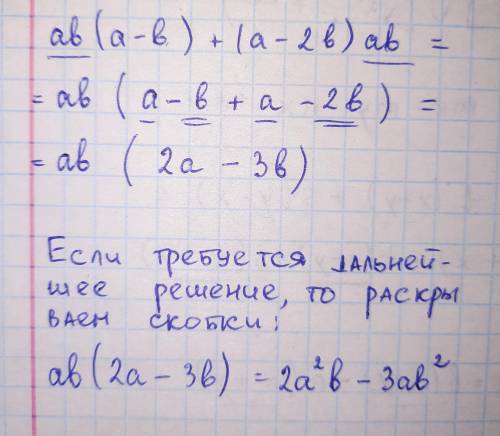 ab(a-b) + (a-2b) ab =
= ab (a - b + a - 2b) =
= ab (2a - 3b)
Если требуется дальней-
шее решение, то раскры
ваен скобки:
ab(2a - 3b) = 2a²b - 3ab²